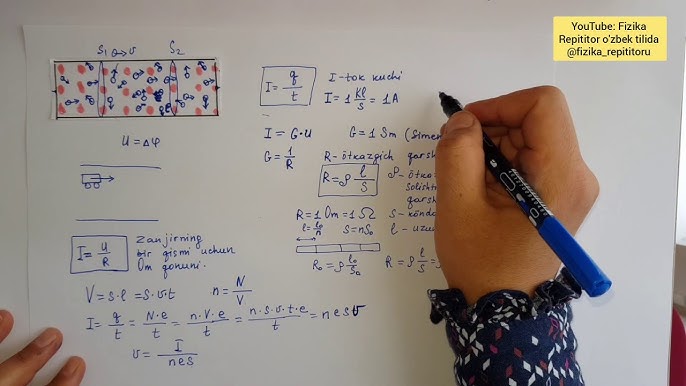 YouTube: Fizika
Repititor o'zbek tilida
@fizika_repititoru
S₁ → v S₂
u = Δφ
I = q/t
I - tok kuchi
I = 1 Kl/s = 1A
I = G·u
G = 1 Sm (Simen
G = 1/R
R - ötkazgich qarsh
R = ρ l/s
ρ - ötka
solisht
qarsh
R = 1 Om = 1 Ω
l = l₀/n
s = ns₀
s - könda
l - uzu
R₀ = ρ l₀/s₀
R = ρ l/s =
I = u/R
Zanjirning
bir qismi uchun
Om qonuni.
V = s·l = s·v·t
n = N/V
I = q/t = N·e/t = n·V·e/t = n·s·v·t·e/t = nesv
v = I/nes